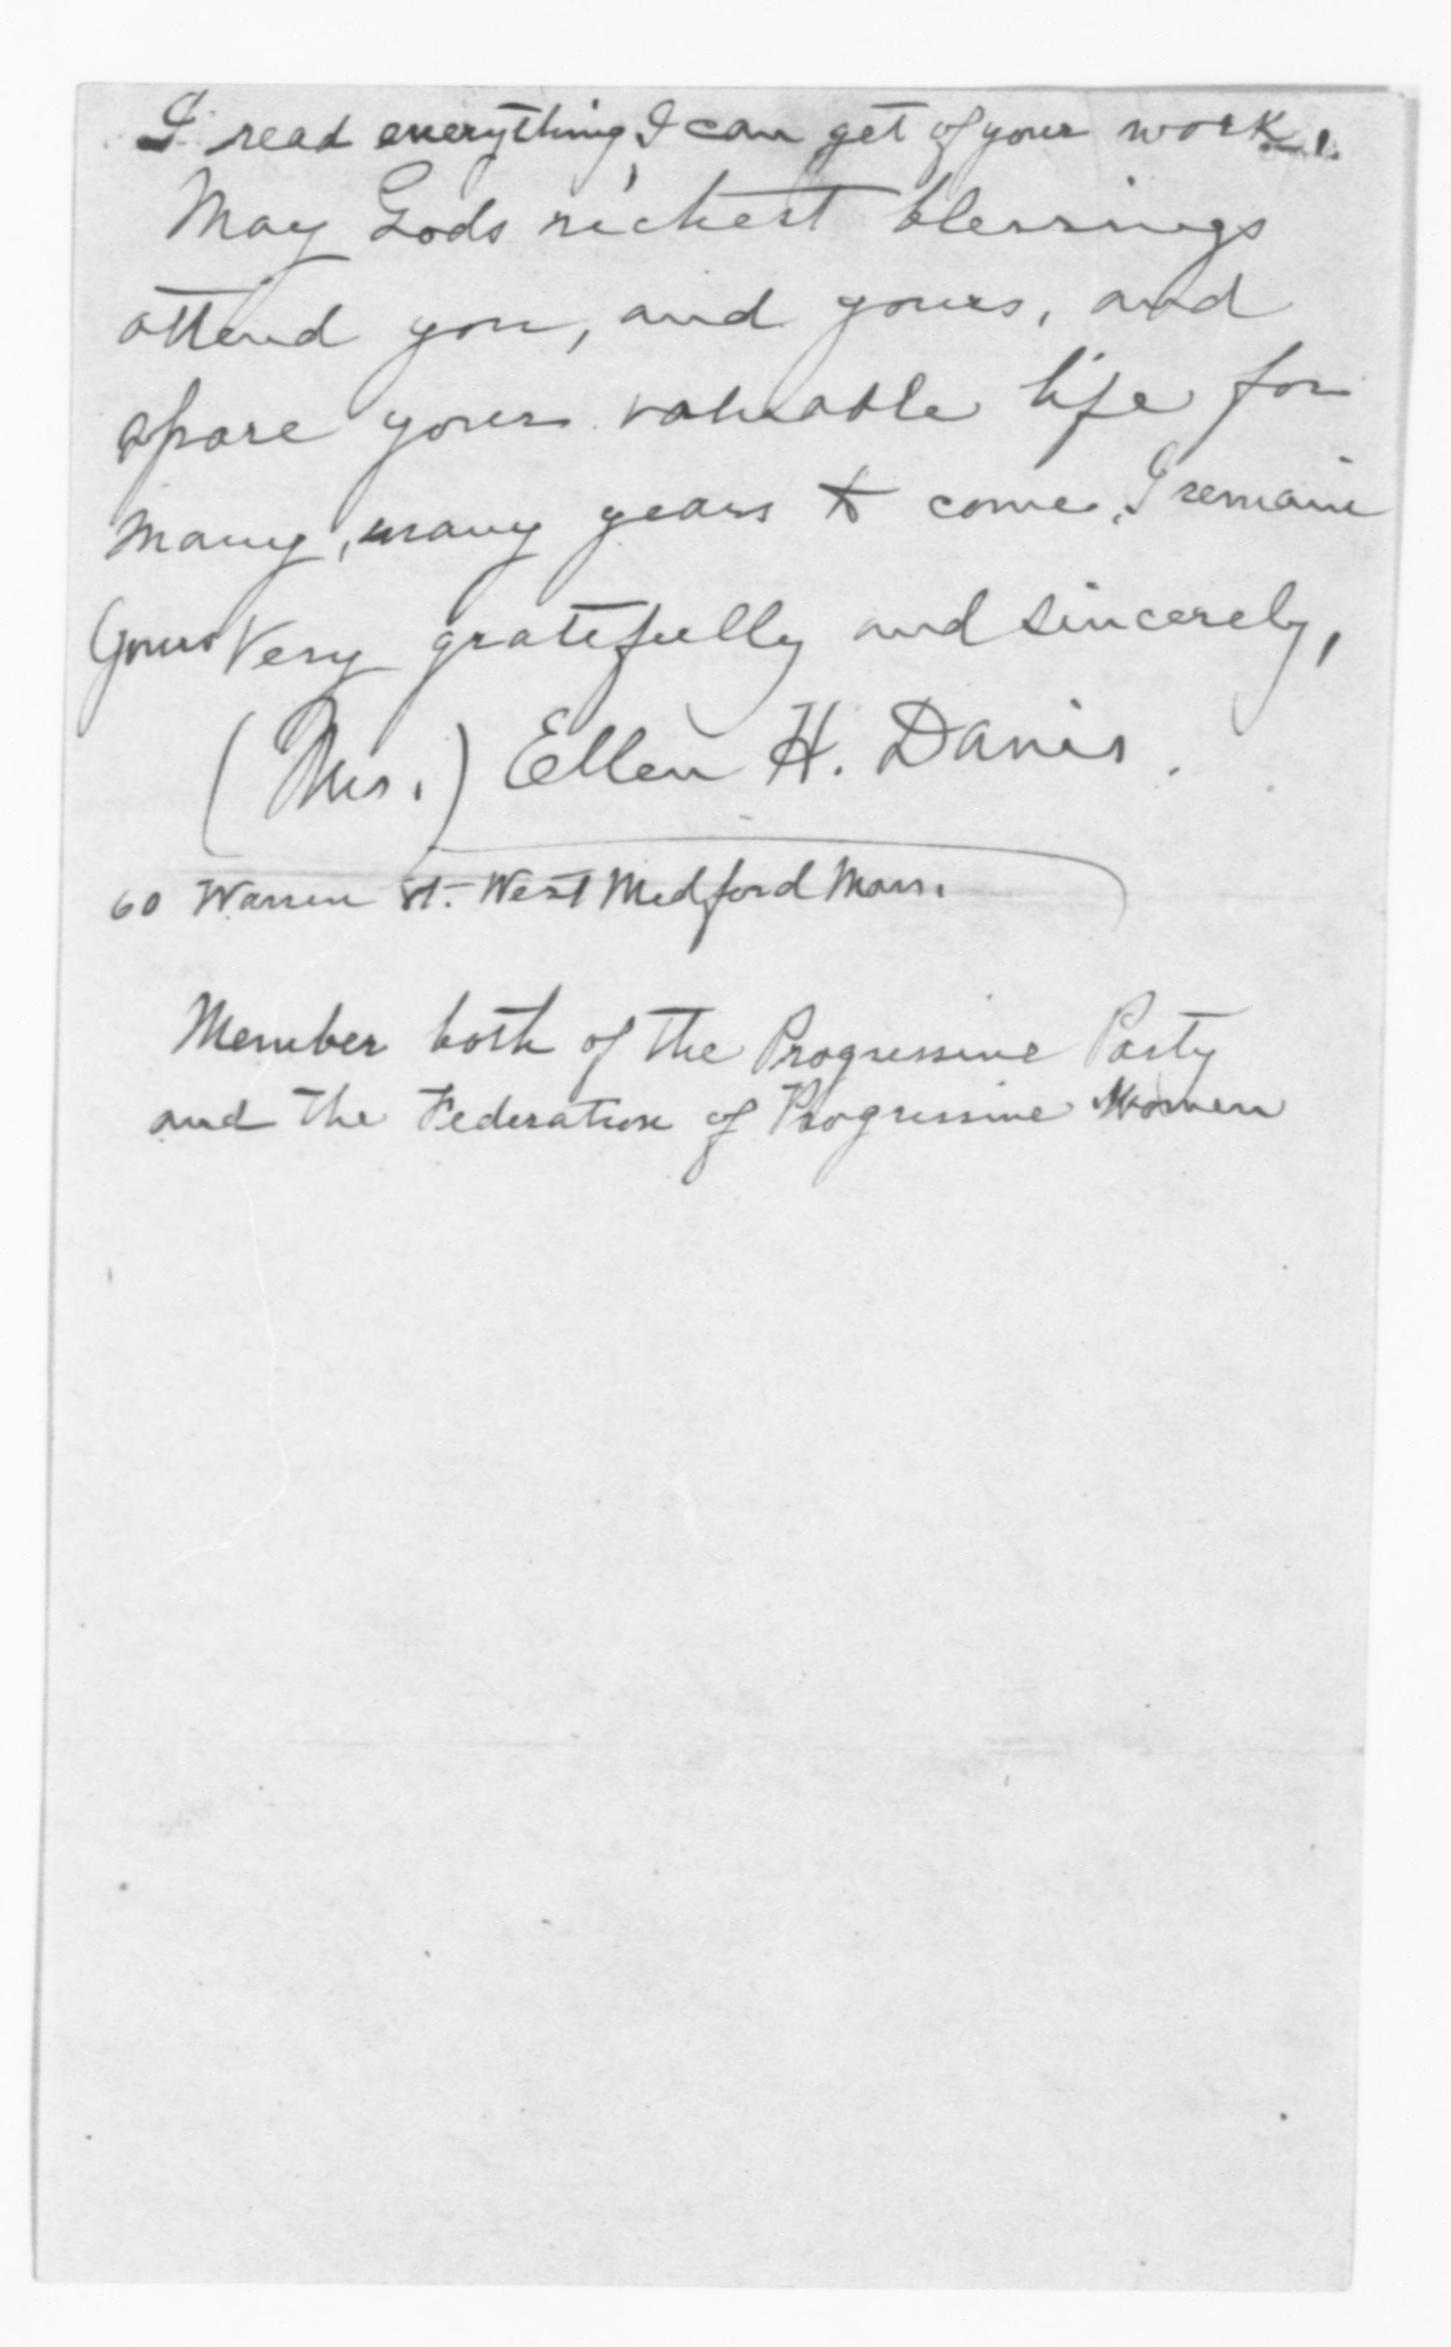 I read everything, I can get of your work.
May Gods richest blessings
attend you, and yours, and
spare your valuable life for
many, many years to come, I remain
Yours Very gratefully and sincerely,
(Mrs.) Ellen H. Davis.
60 Warren St. West Medford Mass.
Member both of the Progressive Party
and the Federation of Progressive Women